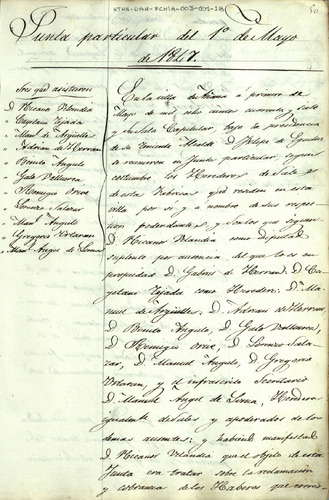 ATHA-DAH-FCHIA-003-001-28
50
Junta particular del 1º de Mayo
de 1847.
Sres que asistieron
D. Nicanor Velandia
" Cayetano Tejada
" Manl. de Argüelles
" Adrian de Herran
" Benito Angulo
" Galo Valluerca
" Remigio Orive
" Lorenzo Salazar
" Manl. Angulo
" Gregorio Urlaran
" Manl. Angel de
En la villa de á primero de
Mayo de mil ocho cientos cuarenta y siete
y su Sala Capitular, bajo la presidencia
de su Teniente Alcalde D. Felipe de
se reunieron en Junta particular, segun
costumbre los Herederos de Sales
de esta Fabrica que residen en esta
villa por si y á nombre de sus respec
poderdantes, y son los que siguen
D. Nicanor Velandia como Diputado
suplente por ausencia del que lo es en
propiedad D. Gabriel de Herran: D. Ca
yetano Tejada como Heredero: D. Ma
nuel de Argüelles, D. Adrian de Herran
D. Benito Angulo, D. Galo Valluerca,
D. Remigio Orive, D. Lorenzo Sala
zar, D. Manuel Angulo, D. Gregorio
Urlaran, y el infrascrito Secretario
D. Manuel Angel de
de Sales y apoderados de los
demas ausentes: y habiendo manifestado
D. Nicanor Velandia que el objeto de esta
Junta era tratar sobre la reclamacion
y cobranza de los Haberes que